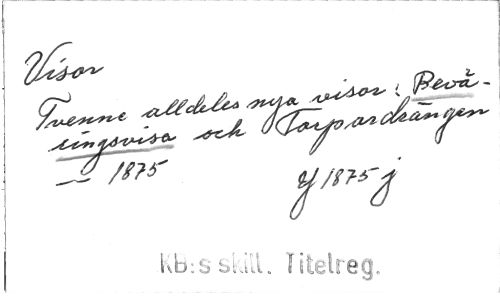 Visor
Tvenne alldeles nya visor: Bevä-
ringsvisa och Torpardrängen
— 1875 Y 1875 j
KB:s skill. Titelreg.